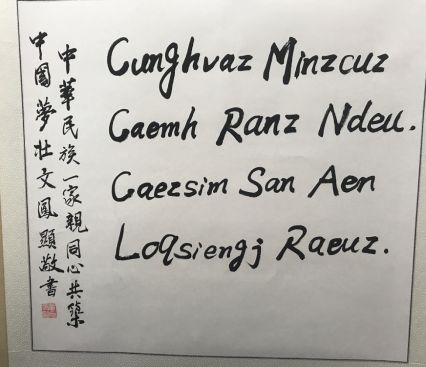 Cunghvaz Minzcuz
Caemh Ranz Ndeu.
Caezsim San Aen
Loqsiengj Raeuz.
中華民族一家親同心共築
中國夢壮文鳳顯敬書